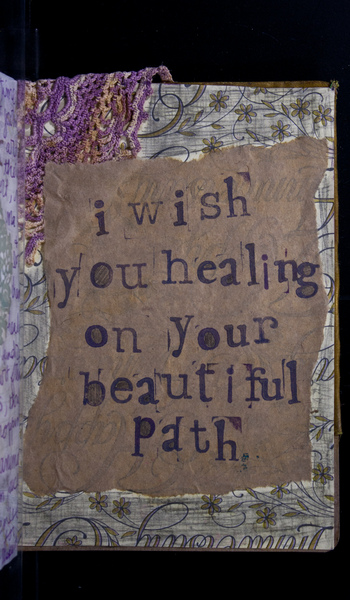 i wish
you healing
on your
beautiful
path